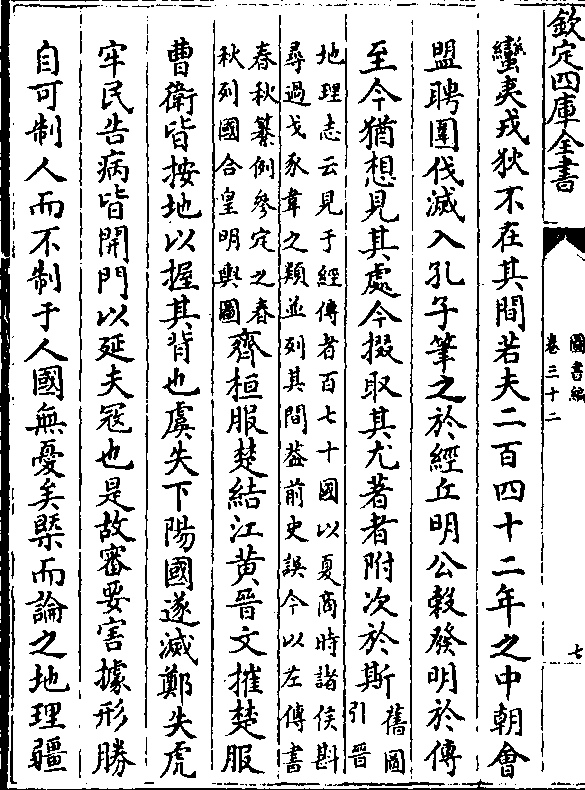 欽定四庫全書
圖書編
卷三十二
七
蠻夷戎狄不在其間若夫二百四十二年之中朝會
盟聘圍伐滅入孔子筆之於經丘明公穀發明於傳
至今猶想見其處今掇取其尤著者附次於斯
舊圖
引晉
地理志云見于經傳者百七十國以夏商時諸侯斟
尋過戈豕韋之類並列其間葢前史誤今以左傳書
春秋纂例參定之春
秋列國合皇明輿圖
齊桓服楚結江黄晉文摧楚服
曹衛皆按地以握其背也虞失下陽國遂滅鄭失虎
牢民告病皆開門以延夫冦也是故審要害據形勝
自可制人而不制于人國無憂矣槩而論之地理疆